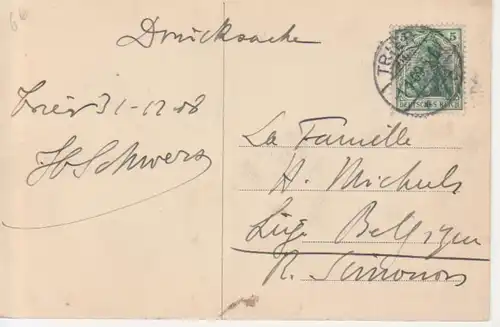 Drucksache
Trier 31-12-08
Schwers
TRIER
5
DEUTSCHES REICH
La Famille
H. Michels
Liége Belgique
R. Simonon